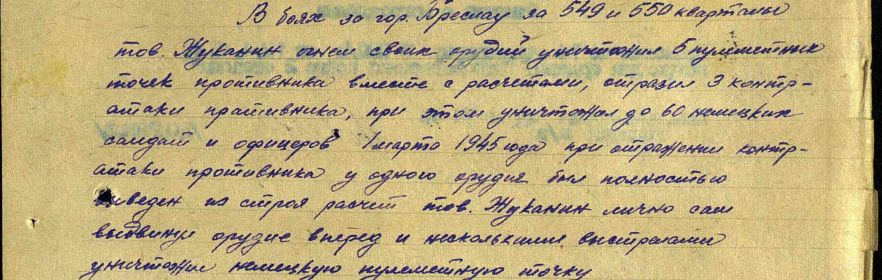 В боях за гор. Бреслау за 549 и 550 кварталы
тов. Жуканин огнем своих орудий уничтожил 5 пулеметных
точек противника вместе с расчетами, отразил 3 контр-
атаки пративника, при этом уничтожил до 60 немецких
солдат и офицеров 1 марта 1945 года при отражении контр-
атаки противника у одного орудия был полностью
выведен из строя расчет тов. Жуканин лично сам
выдвинул орудие вперед и несколькими выстрелами
уничтожил немецкую пулеметную точку